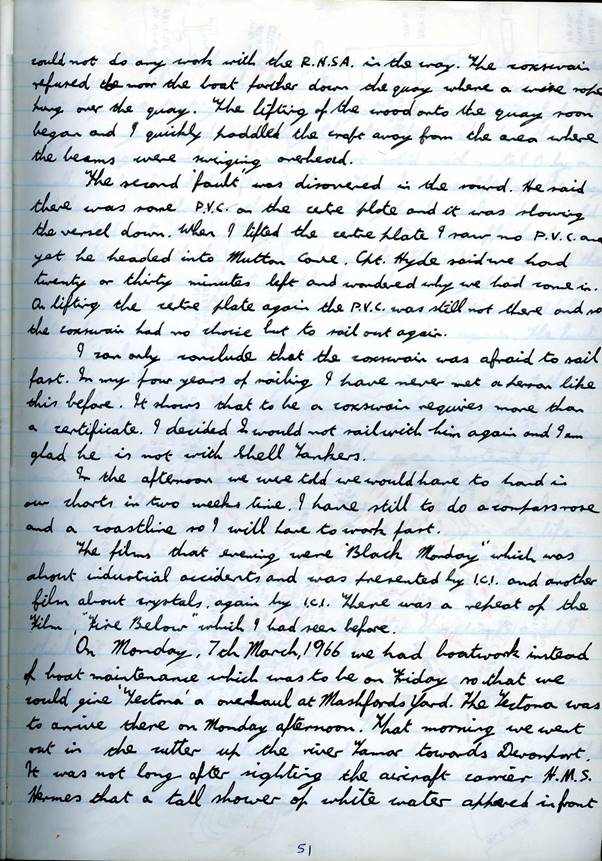 could not do any work with the R.N.S.A. in the way. The coxswain
refused to moor the boat further down the quay where a wire rope
hung over the quay. The lifting of the wood onto the quay soon
began and I quickly paddled the craft away from the area where
the beams were swinging overhead.
The second 'fault' was discovered in the sound. He said
there was some P.V.C. on the cetre plate and it was slowing
the vessel down. When I lifted the cetre plate I saw no P.V.C. and
yet he headed into Mutton Cove. Cpt. Hyde said we had
twenty or thirty minutes left and wondered why we had come in.
On lifting the cetre plate again the P.V.C. was still not there and so
the coxswain had no choice but to sail out again.
I can only conclude that the coxswain was afraid to sail
fast. In my four years of sailing I have never met a person like
this before. It shows that to be a coxswain requires more than
a certificate. I decided I would not sail with him again and I am
glad he is not with Shell Tankers.
In the afternoon we were told we would have to hand in
our charts in two weeks time. I have still to do a compass rose
and a coastline so I will have to work fast.
The films that evening were "Black Monday" which was
about industrial accidents and was presented by I.C.I. and another
film about crystals, again by I.C.I. There was a repeat of the
film, "Fire Below" which I had seen before.
On Monday, 7th March, 1966 we had boatwork instead
of boat maintenance which was to be on Friday so that we
could give 'Tectona' a overhaul at Mashfords Yard. The Tectona was
to arrive there on Monday afternoon. That morning we went
out in the cutter up the river Tamar towards Devonport.
It was not long after sighting the aircraft carrier H.M.S.
Hermes that a tall shower of white water appeared in front
51